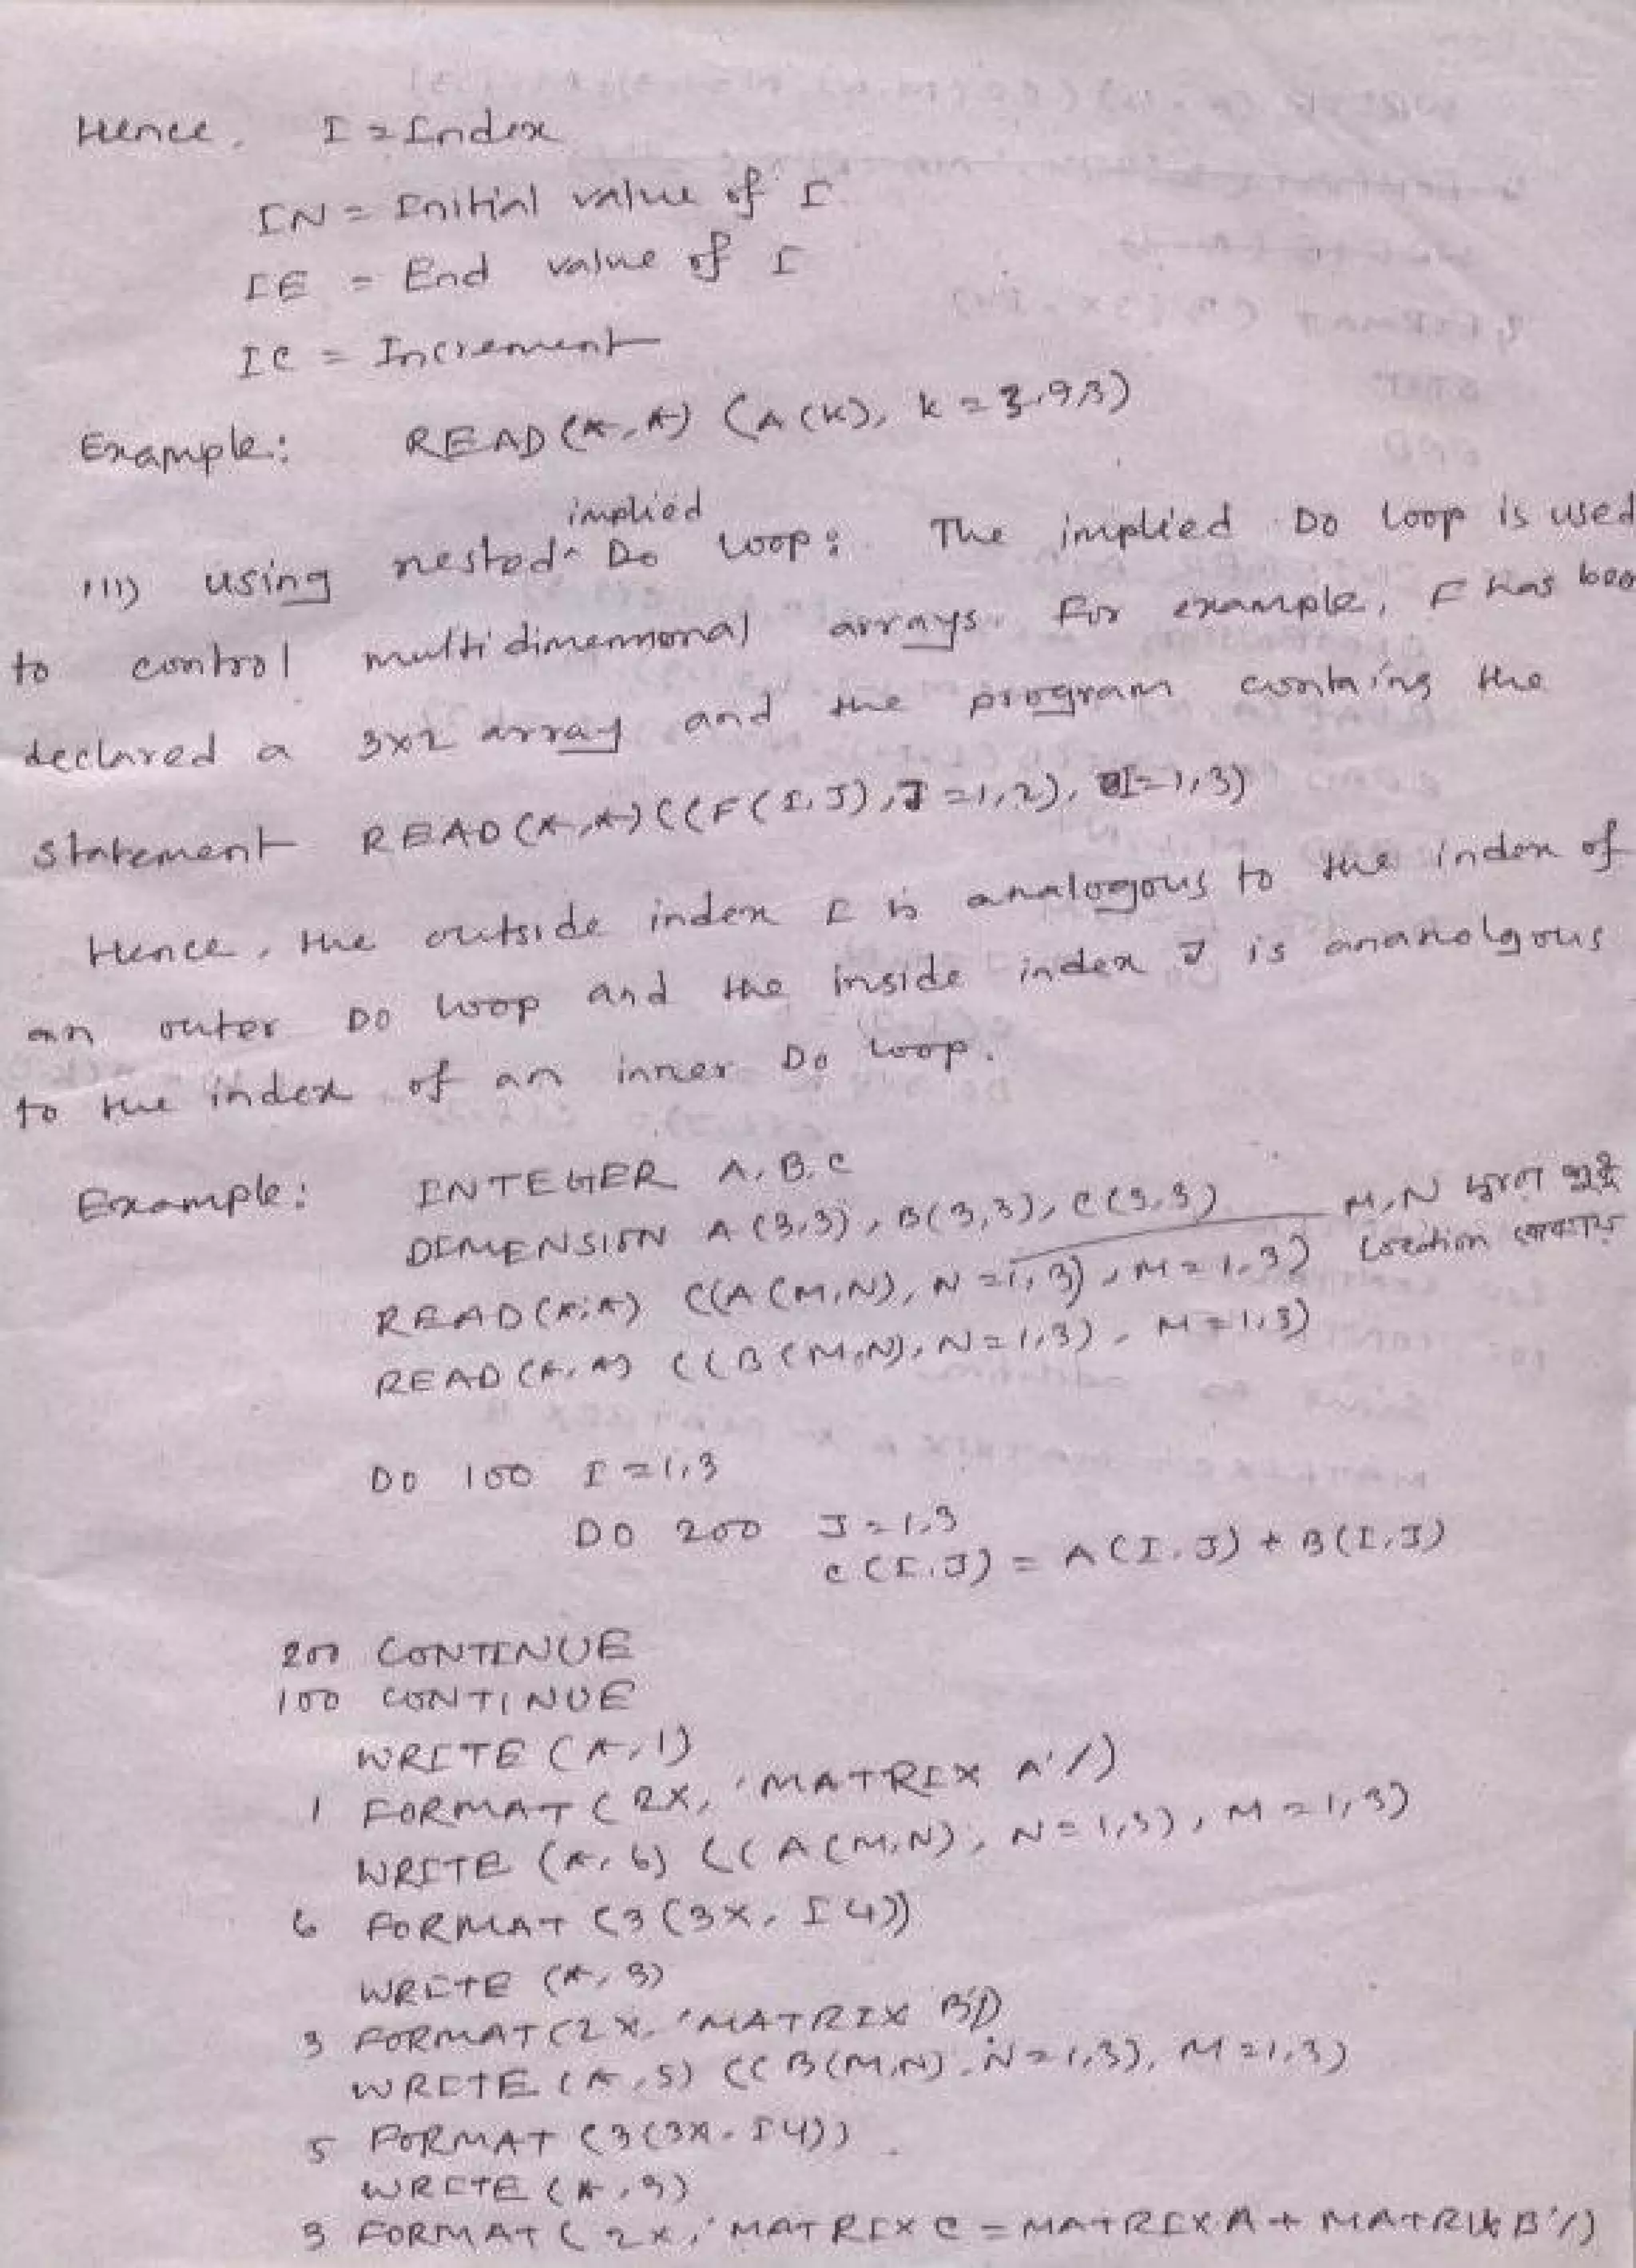 Hence, I = Index
IN = Initial value of I
IE = End value of I
IC = Increment
Example: READ(*,*) (A(K), K = 3,9,3)
III) using nested ^ implied Do loop: The implied Do loop is used
to control multidimensional arrays. For example, F has been
declared a 3x2 array and the program contains the
Statement READ(*,*)((F(I,J),J=1,2), I=1,3)
Hence, the outside index I is analogous to the index of
an outer DO loop and the inside index J is ananolgous
to the index of an inner Do loop.
Example: INTEGER A, B, C
DIMENSION A(3,3), B(3,3), C(3,3)
M,N দ্বারা শুধু
READ(*,*) ((A(M,N), N=1,3), M=1,3)
Location বোঝায়
READ(*,*) ((B(M,N), N=1,3), M=1,3)
DO 100 I=1,3
DO 200 J=1,3
C(I,J) = A(I,J) + B(I,J)
200 CONTINUE
100 CONTINUE
WRITE (*,1)
1 FORMAT (2X, 'MATRIX A'/)
WRITE (*,6) ((A(M,N), N=1,3), M=1,3)
6 FORMAT (3(3X, I4))
WRITE (*,3)
3 FORMAT(2X, 'MATRIX B'/)
WRITE (*,5) ((B(M,N), N=1,3), M=1,3)
5 FORMAT (3(3X, I4))
WRITE (*,3)
3 FORMAT (2X, 'MATRIX C = MATRIX A + MATRIX B'/)